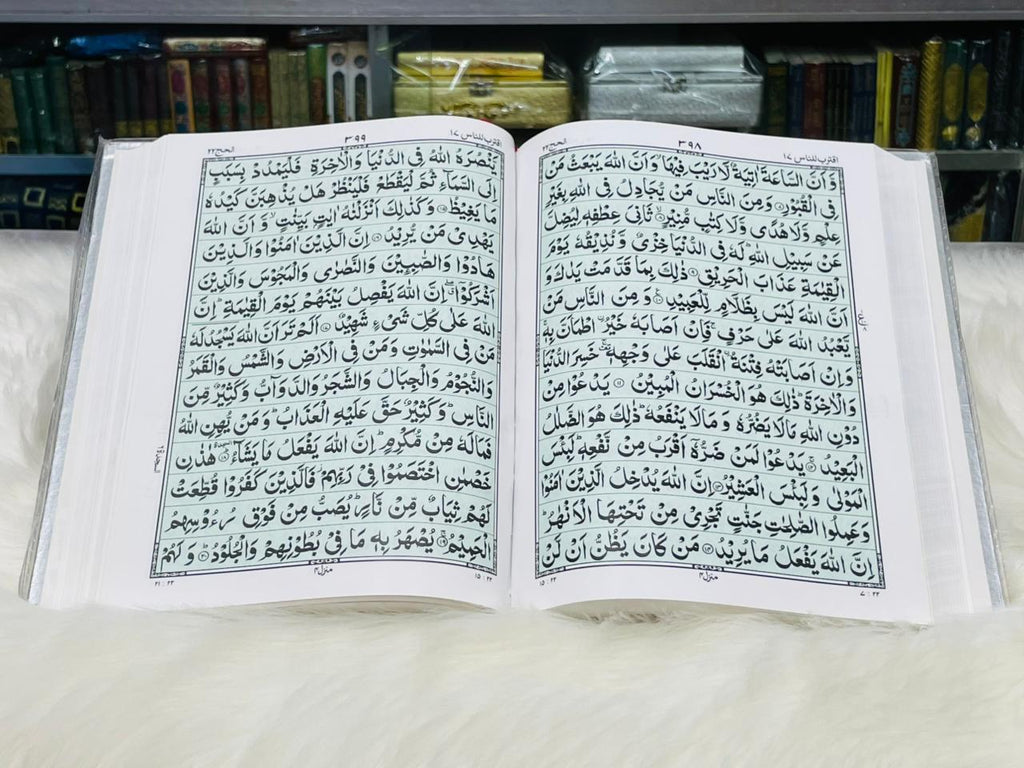 اقترب للناس ۱۷ ۳۹۸ الحج ۲۲
وَّ اَنَّ السَّاعَةَ اٰتِيَةٌ لَّا رَيْبَ فِيْهَا ۙ وَ اَنَّ اللّٰهَ يَبْعَثُ مَنْ
فِى الْقُبُوْرِ ۝۷ وَمِنَ النَّاسِ مَنْ يُّجَادِلُ فِى اللّٰهِ بِغَيْرِ
عِلْمٍ وَّلَا هُدًى وَّلَا كِتٰبٍ مُّنِيْرٍ ۝۸ ثَانِىَ عِطْفِهٖ لِيُضِلَّ
عَنْ سَبِيْلِ اللّٰهِ ؕ لَهٗ فِى الدُّنْيَا خِزْىٌ وَّ نُذِيْقُهٗ يَوْمَ
الْقِيٰمَةِ عَذَابَ الْحَرِيْقِ ۝۹ ذٰلِكَ بِمَا قَدَّمَتْ يَدٰكَ وَ
اَنَّ اللّٰهَ لَيْسَ بِظَلَّامٍ لِّلْعَبِيْدِ ۝۱۰ وَ مِنَ النَّاسِ مَنْ
يَّعْبُدُ اللّٰهَ عَلٰى حَرْفٍ ۚ فَاِنْ اَصَابَهٗ خَيْرُ ۨ اطْمَاَنَّ بِهٖ ۚ
وَ اِنْ اَصَابَتْهُ فِتْنَةُ ۨ انْقَلَبَ عَلٰى وَجْهِهٖ ۚ خَسِرَ الدُّنْيَا
وَ الْاٰخِرَةَ ؕ ذٰلِكَ هُوَ الْخُسْرَانُ الْمُبِيْنُ ۝۱۱ يَدْعُوْا مِنْ
دُوْنِ اللّٰهِ مَا لَا يَضُرُّهٗ وَ مَا لَا يَنْفَعُهٗ ؕ ذٰلِكَ هُوَ الضَّلٰلُ
الْبَعِيْدُ ۝۱۲ يَدْعُوْا لَمَنْ ضَرُّهٗۤ اَقْرَبُ مِنْ نَّفْعِهٖ ؕ لَبِئْسَ
الْمَوْلٰى وَ لَبِئْسَ الْعَشِيْرُ ۝۱۳ اِنَّ اللّٰهَ يُدْخِلُ الَّذِيْنَ اٰمَنُوْا
وَ عَمِلُوا الصّٰلِحٰتِ جَنّٰتٍ تَجْرِىْ مِنْ تَحْتِهَا الْاَنْهٰرُ ؕ
اِنَّ اللّٰهَ يَفْعَلُ مَا يُرِيْدُ ۝۱۴ مَنْ كَانَ يَظُنُّ اَنْ لَّنْ
۷ : ۲۲ منزل ۴ ۱۵ : ۲۲
اقترب للناس ۱۷ ۳۹۹ الحج ۲۲
يَّنْصُرَهُ اللّٰهُ فِى الدُّنْيَا وَ الْاٰخِرَةِ فَلْيَمْدُدْ بِسَبَبٍ
اِلَى السَّمَآءِ ثُمَّ لْيَقْطَعْ فَلْيَنْظُرْ هَلْ يُذْهِبَنَّ كَيْدُهٗ
مَا يَغِيْظُ ۝۱۵ وَ كَذٰلِكَ اَنْزَلْنٰهُ اٰيٰتٍۭ بَيِّنٰتٍ ۙ وَّ اَنَّ اللّٰهَ
يَهْدِىْ مَنْ يُّرِيْدُ ۝۱۶ اِنَّ الَّذِيْنَ اٰمَنُوْا وَ الَّذِيْنَ
هَادُوْا وَ الصّٰبِـِٕيْنَ وَ النَّصٰرٰى وَ الْمَجُوْسَ وَ الَّذِيْنَ
اَشْرَكُوْۤا ۖ اِنَّ اللّٰهَ يَفْصِلُ بَيْنَهُمْ يَوْمَ الْقِيٰمَةِ ؕ اِنَّ
اللّٰهَ عَلٰى كُلِّ شَىْءٍ شَهِيْدٌ ۝۱۷ اَلَمْ تَرَ اَنَّ اللّٰهَ يَسْجُدُ لَهٗ
مَنْ فِى السَّمٰوٰتِ وَ مَنْ فِى الْاَرْضِ وَ الشَّمْسُ وَ الْقَمَرُ
وَ النُّجُوْمُ وَ الْجِبَالُ وَ الشَّجَرُ وَ الدَّوَآبُّ وَ كَثِيْرٌ مِّنَ
النَّاسِ ؕ وَ كَثِيْرٌ حَقَّ عَلَيْهِ الْعَذَابُ ؕ وَ مَنْ يُّهِنِ اللّٰهُ
فَمَا لَهٗ مِنْ مُّكْرِمٍ ؕ اِنَّ اللّٰهَ يَفْعَلُ مَا يَشَآءُ ۝۱۸ هٰذٰنِ
خَصْمٰنِ اخْتَصَمُوْا فِىْ رَبِّهِمْ ؗ فَالَّذِيْنَ كَفَرُوْا قُطِّعَتْ
لَهُمْ ثِيَابٌ مِّنْ نَّارٍ ؕ يُصَبُّ مِنْ فَوْقِ رُءُوْسِهِمُ
الْحَمِيْمُ ۝۱۹ يُصْهَرُ بِهٖ مَا فِىْ بُطُوْنِهِمْ وَ الْجُلُوْدُ ۝۲۰ وَ لَهُمْ
۱۵ : ۲۲ منزل ۴ ۲۱ : ۲۲